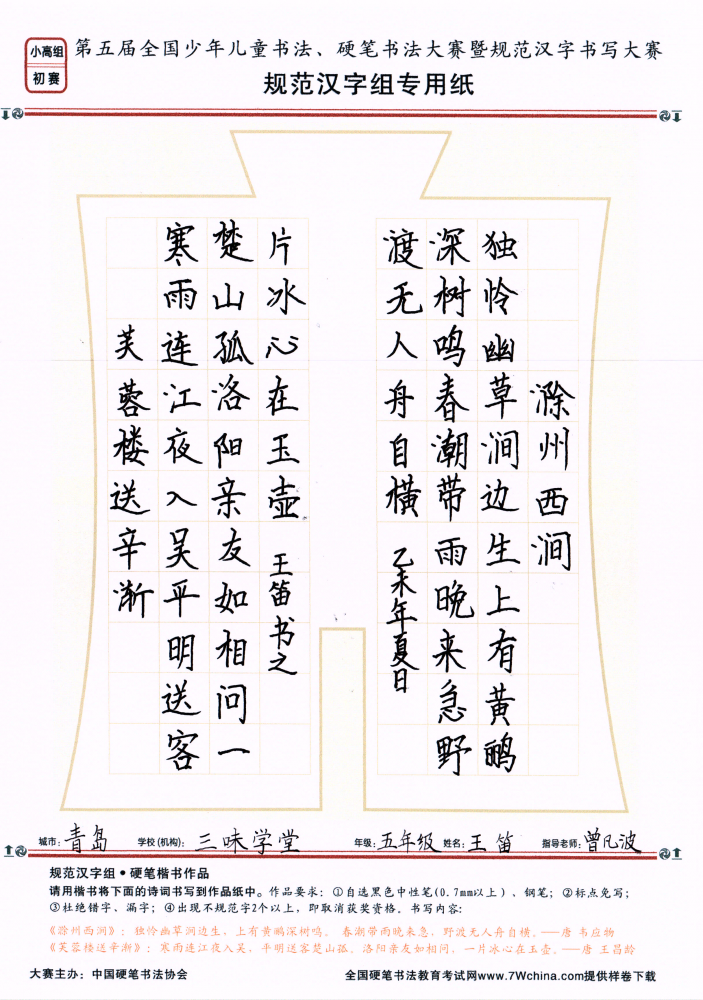 小高组
初赛
第五届全国少年儿童书法、硬笔书法大赛暨规范汉字书写大赛
规范汉字组专用纸
滁州西涧
独怜幽草涧边生上有黄鹂
深树鸣春潮带雨晚来急野
渡无人舟自横 乙未年夏日
芙蓉楼送辛渐
寒雨连江夜入吴平明送客
楚山孤洛阳亲友如相问一
片冰心在玉壶 王笛书之
城市:青岛 学校(机构):三味学堂 年级:五年级 姓名:王笛 指导老师:曾凡波
规范汉字组•硬笔楷书作品
请用楷书将下面的诗词书写到作品纸中。作品要求:①自选黑色中性笔(0.7mm以上)、钢笔;②标点免写;
③杜绝错字、漏字;④出现不规范字2个以上,即取消获奖资格。书写内容:
《滁州西涧》:独怜幽草涧边生,上有黄鹂深树鸣。 春潮带雨晚来急,野渡无人舟自横。——唐 韦应物
《芙蓉楼送辛渐》:寒雨连江夜入吴,平明送客楚山孤。洛阳亲友如相问,一片冰心在玉壶。——唐 王昌龄
大赛主办:中国硬笔书法协会 全国硬笔书法教育考试网www.7Wchina.com提供样卷下载